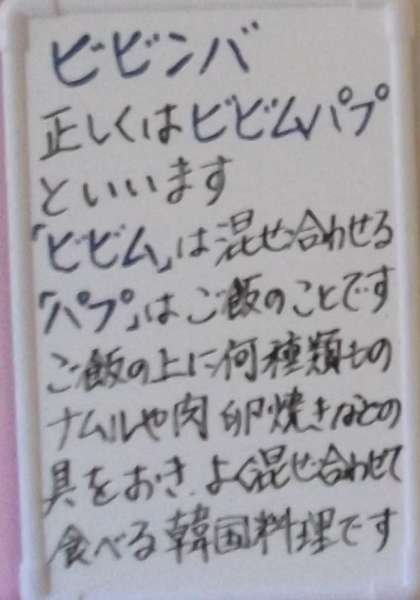 ビビンバ
正しくはビビムパプ
といいます
「ビビム」は混ぜ合わせる
「パプ」はご飯のことです
ご飯の上に何種類もの
ナムルや肉 卵焼きなどの
具をおき、よく混ぜ合わせて
食べる韓国料理です